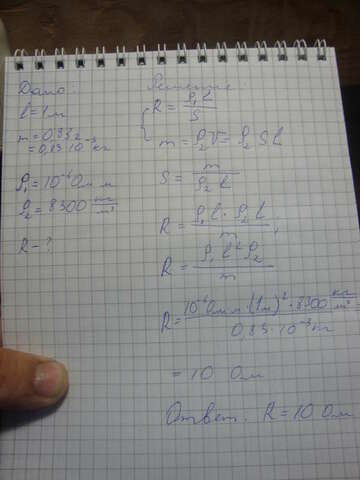 Дано:
l = 1 м
m = 0,83 г
= 0,83·10⁻³ кг
ρ₁ = 10⁻⁶ Ом м
ρ₂ = 8300 кг/м³
R - ?
Решение:
R = ρ₁ l / S
m = ρ₂ V = ρ₂ S l
S = m / ρ₂ l
R = ρ₁ l · ρ₂ l / m ;
R = ρ₁ l² ρ₂ / m
R = 10⁻⁶ Ом м · (1 м)² · 8300 кг/м³ / 0,83 · 10⁻³ г
= 10 Ом
Ответ. R = 10 Ом